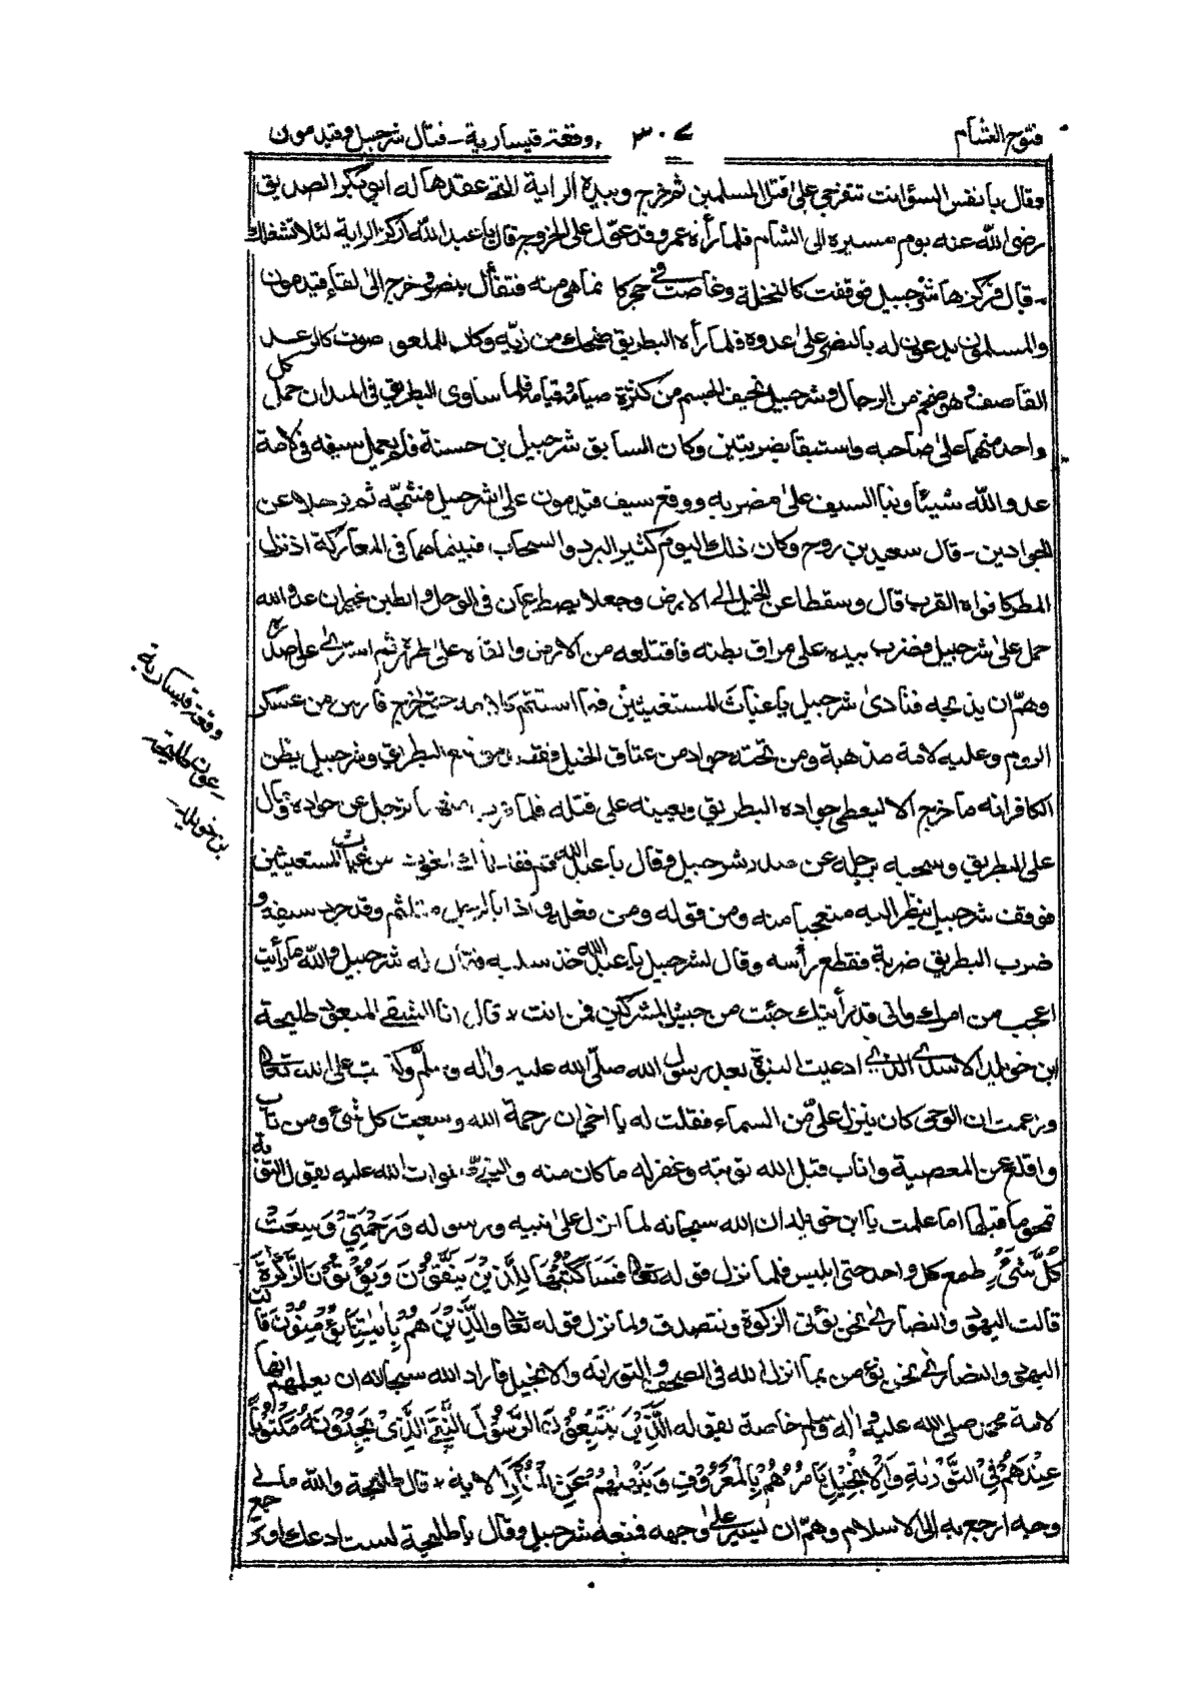 فتوح الشام
٣٠٤
وقعة قيسارية - قتال شرحبيل وقيدمون
وقال يا نفس السؤ انت تتفرجي على قتل المسلمين ثم خرج وبيده الراية التي عقدها له ابو بكر الصديق
رضى الله عنه يوم مسيره الى الشام فلما رأه عمرو قد عوّل على الخروج قال يا عبد الله اركز الراية لئلا تشغلك
- قال فركزها شرحبيل فوقفت كالنخلة وغاصت في حجر كا نما هي منه فتفأل بنصر وخرج الى لقاء قيدمون
والمسلمون يدعون له بالنصر على عدوه فلما رأه البطريق ضحك من زيّه وكان للملعون صوت كالرعد
القاصف وهو ضخم من الرجال وشرحبيل نحيف الجسم من كثرة صيامه وقيامه فلما ساوى البطريق فى الميدان حمل كل
واحد منهما على صاحبه واستبقا بضربتين وكان السابق شرحبيل بن حسنة فلم يعمل سيفه فى لامة
عدو الله شيئا ونبا السيف على مضربه ووقع سيف قيدمون على شرحبيل فشجّه ثم عن
الجوادين - قال سعيد بن روح وكان ذلك اليوم كثير البرد والسحاب فبينما هما فى المعاركة اذ نزل
المطر كافواه القرب قال وسقطا عن الخيل الى الارض وجعلا يصطرعان فى الوحل والطين غير ان عدو الله
حمل على شرحبيل فضرب بيده على مراق بطنه فاقتلعه من الارض والقاه على ظهره ثم استوى على صدره
وهمّ ان يذبحه فنادى شرحبيل يا غياث المستغيثين فما استتم كلامه حتى خرج فارس من عسكر
الروم وعليه لامة مذهبة ومن تحته جواد من عتاق الخيل فقصد موضع البطريق وشرحبيل يظن
الكافر انه ما خرج الا ليعطى جواده البطريق ويعينه على قتله فلما قرب منهما ترجل عن جواده ومال
على البطريق وسحبه برجله عن صدر شرحبيل وقال يا عبد الله قم فقد اتاك الغوث من غياث المستغيثين
فوقف شرحبيل ينظر اليه متعجبا منه ومن قوله ومن فعله واذا بالرجل متلثم وقد جرد سيفه و
ضرب البطريق ضربة فقطع رأسه وقال لشرحبيل يا عبد الله خذ سلبه فقال له شرحبيل والله ما رأيت
اعجب من امرك وانى قد رأيتك جئت من جيش المشركين فمن انت ٭ قال انا الشقى المبعوق طليحة
ابن خويلد الاسدي الذي ادعيت النبوة بعد رسول الله صلّى الله عليه واله وسلّم وكذبت على الله تعالى
وزعمت ان الوحى كان ينزل علىّ من السماء فقلت له يا اخى ان رحمة الله وسعت كل شئ ومن تاب
واقلع عن المعصية واناب قبل الله توبته وغفر له ما كان منه والنبي صلوات الله عليه يقول التوبة
تمحو ما قبلها اما علمت يا ابن خويلد ان الله سبحانه لما انزل على نبيه ورسوله وَرَحْمَتِيْ وَسِعَتْ
كُلَّ شَيْءٍ طمع كل واحد حتى ابليس فلما نزل قوله تعالى فَسَاَكْتُبُهَا لِلَّذِيْنَ يَتَّقُوْنَ وَيُؤْتُوْنَ الزَّكٰوةَ
قالت اليهود والنصارى نحن نؤتى الزكوة ونتصدق ولما نزل قوله تعالى وَالَّذِيْنَ هُمْ بِاٰيٰتِنَا يُؤْمِنُوْنَ قالت
اليهود والنصارى نحن نؤمن بما انزل الله فى الصحف والتورانة والانجيل فاراد الله سبحانه ان يعلمهم انها
لامة محمد صلى الله عليه واله وسلم خاصة بقوله اَلَّذِيْنَ يَتَّبِعُوْنَ الرَّسُوْلَ النَّبِيَّ الَّذِيْ يَجِدُوْنَهُ مَكْتُوْبًا
عِنْدَهُمْ فِى التَّوْرٰىةِ وَالْاِنْجِيْلِ يَأمُرُهُمْ بِالْمَعْرُوْفِ وَيَنْهٰىهُمْ عَنِ الْمُنْكَرِ الاية ٭ قال طليحة والله مالى
وجه ارجع به الى الاسلام وهمّ ان يسير على وجهه فمنعه شرحبيل وقال يا طليحة لست ادعك او ترجع
وقعة قيسارية
- عون طليحة
بن خويلد -